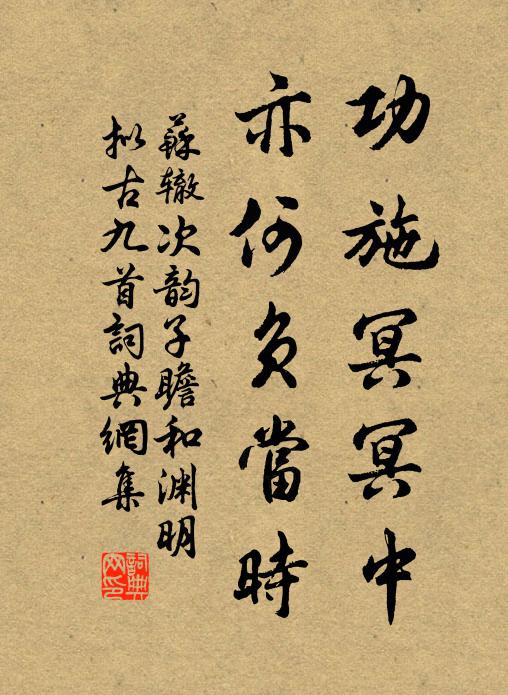 功施冥冥中
亦何負當時
蘇辙次韵子瞻和渊明
拟古九首詞典網集
詞典
网印